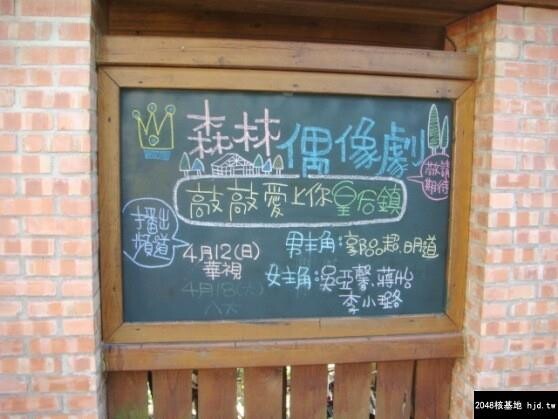 森林偶像劇
敬請
期待
敲敲愛上你皇后鎮
播出
頻道
4月12(日)
華視
4月18(六)
八大
男主角:郭品超.明道
女主角:吳亞馨.蔣怡
李小璐
2048核基地 hjd.tw